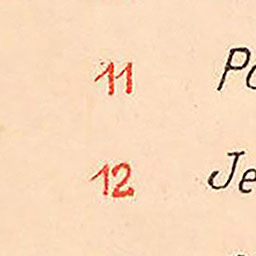 11 Po
12 Je